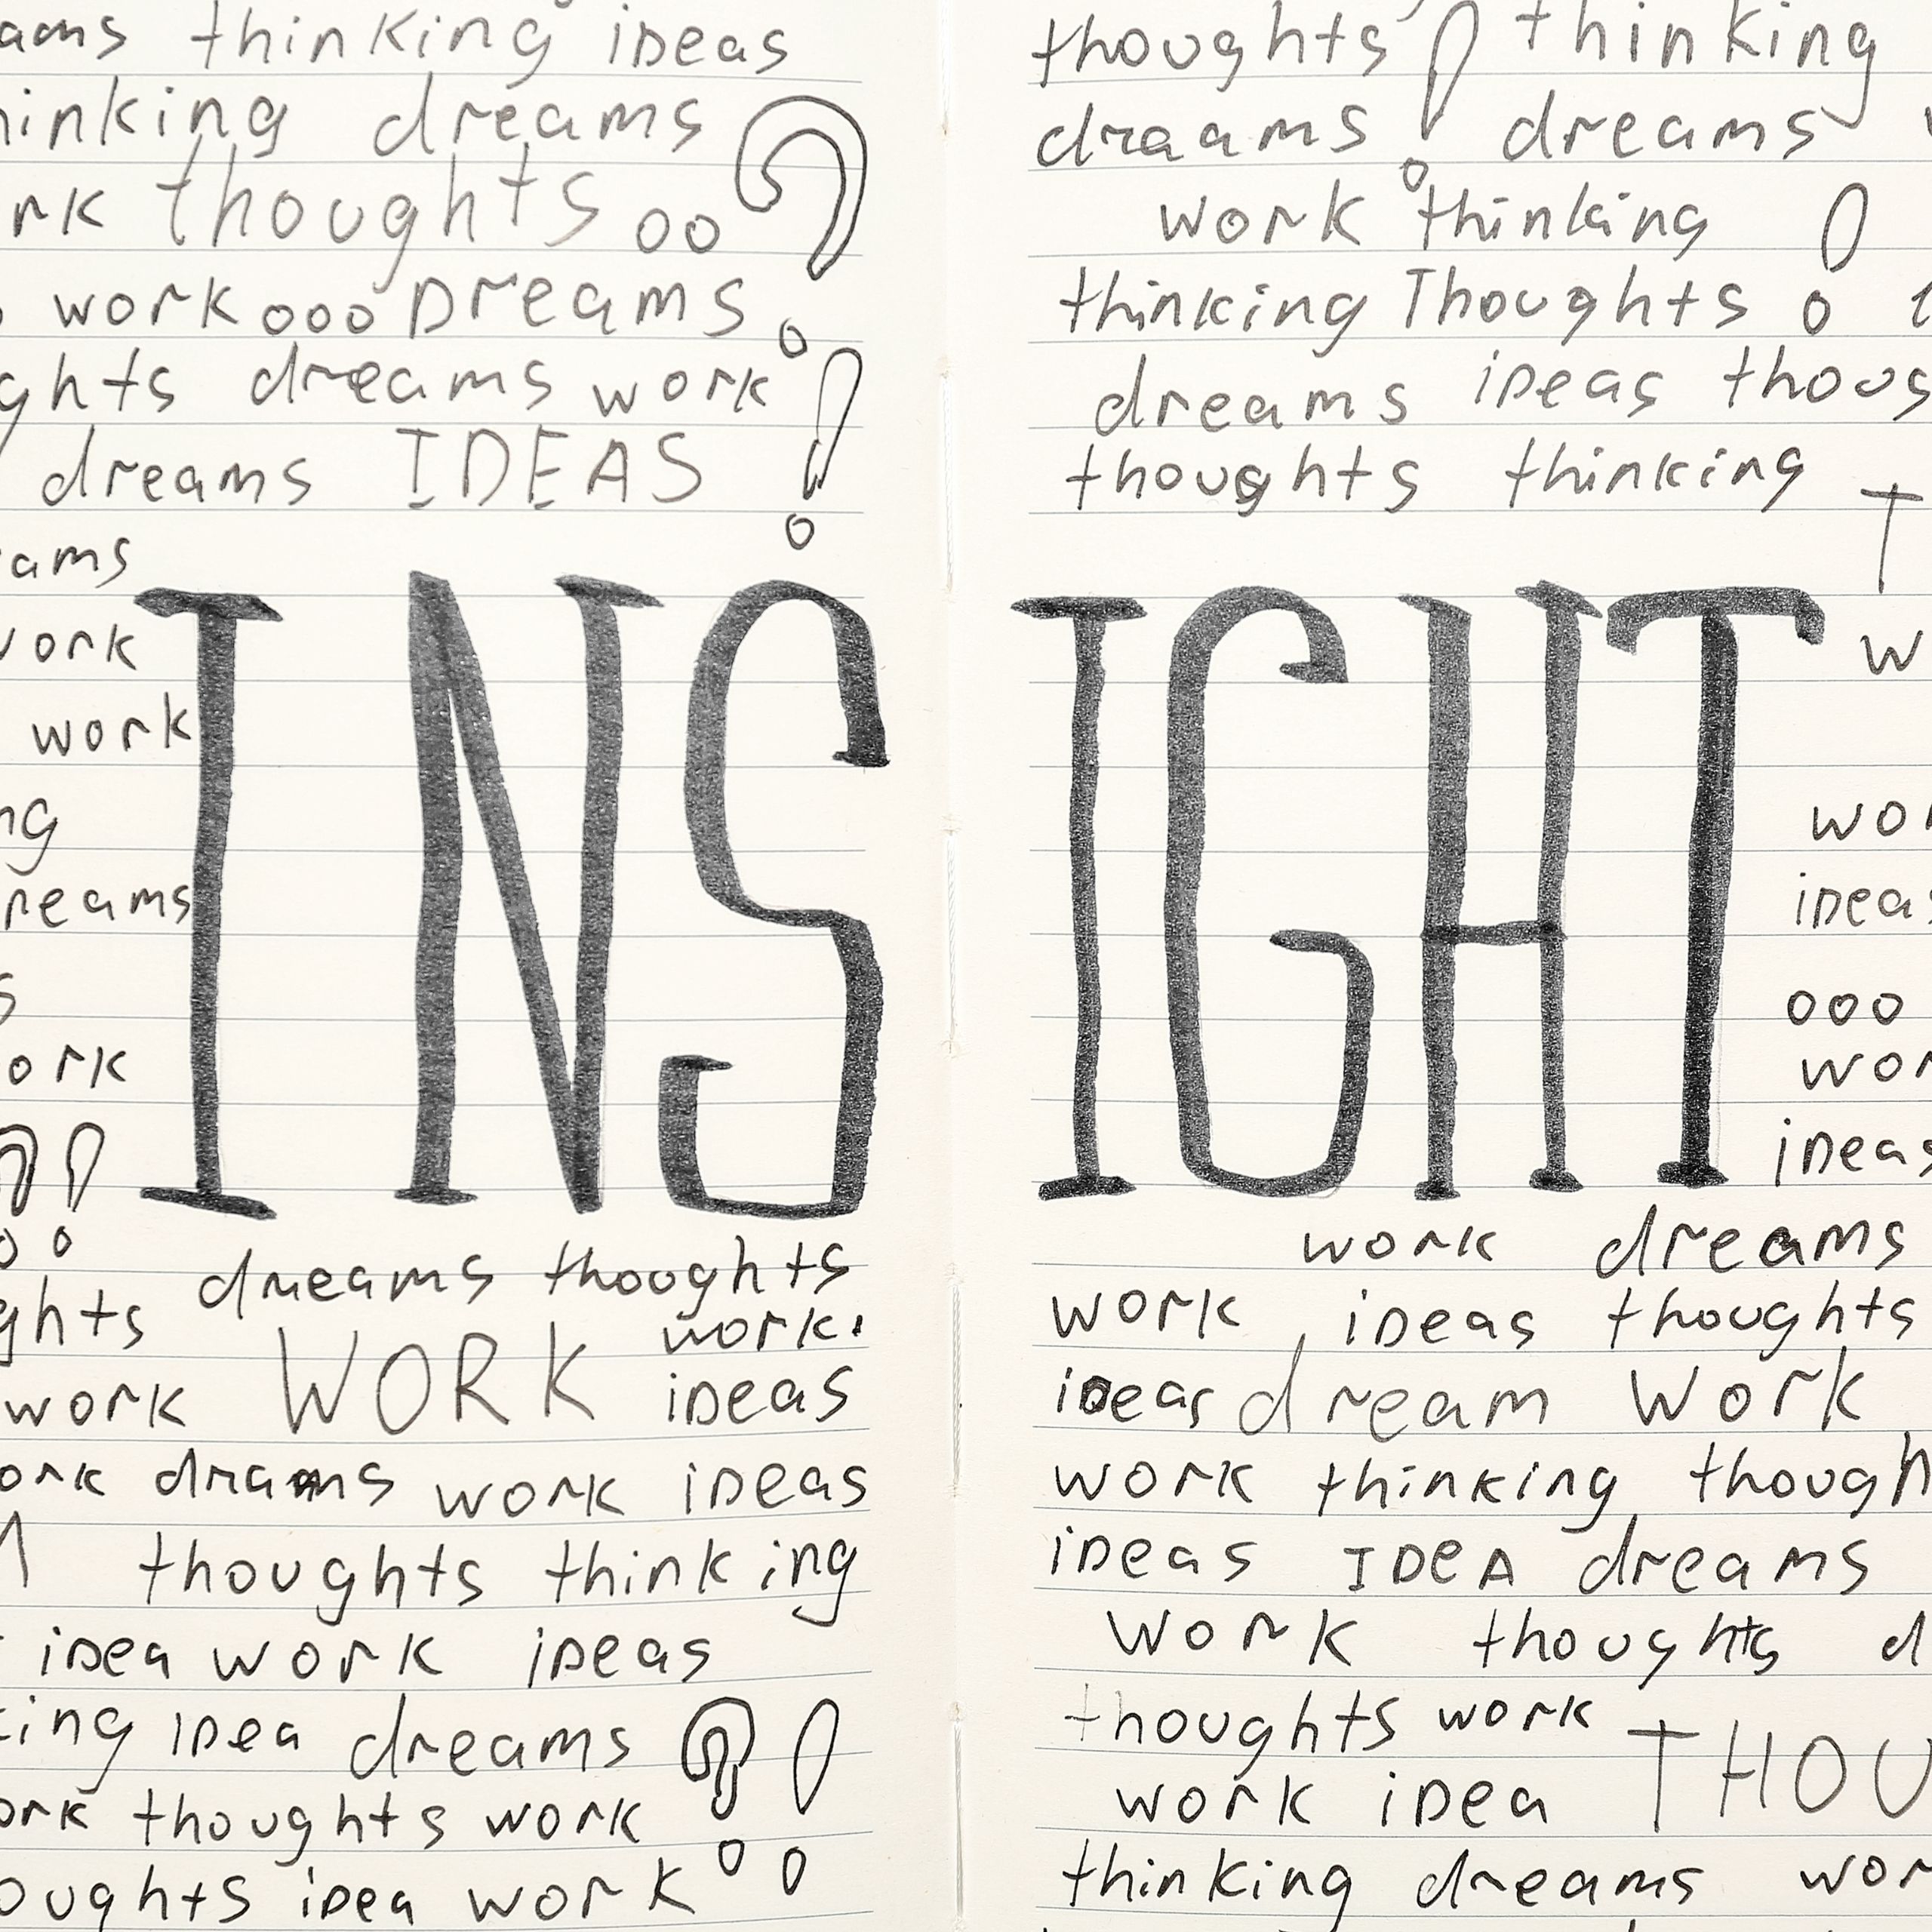 ams thinking ideas
hinking dreams ?
rk thoughts oo
work ooo Dreams
ghts dreams work !
dreams IDEAS
ams
work
work
ng
reams
s
ork
INS
? !
dreams thoughts
ghts work.
work WORK ideas
ork drams work ideas
thoughts thinking
idea work ideas
king idea dreams ? !
ork thoughts work
oughts idea work
thoughts ! thinking
draams dreams
work thinking !
thinking Thoughts
dreams ideas thoug
thoughts thinking
T
w
IGHT
wor
ideas
ooo
wor
ideas
work dreams
work, ideas thoughts
ideas dream Work
work thinking though
ideas IDeA dreams
work thoughts d
thoughts work
work idea THOU
thinking dreams wor